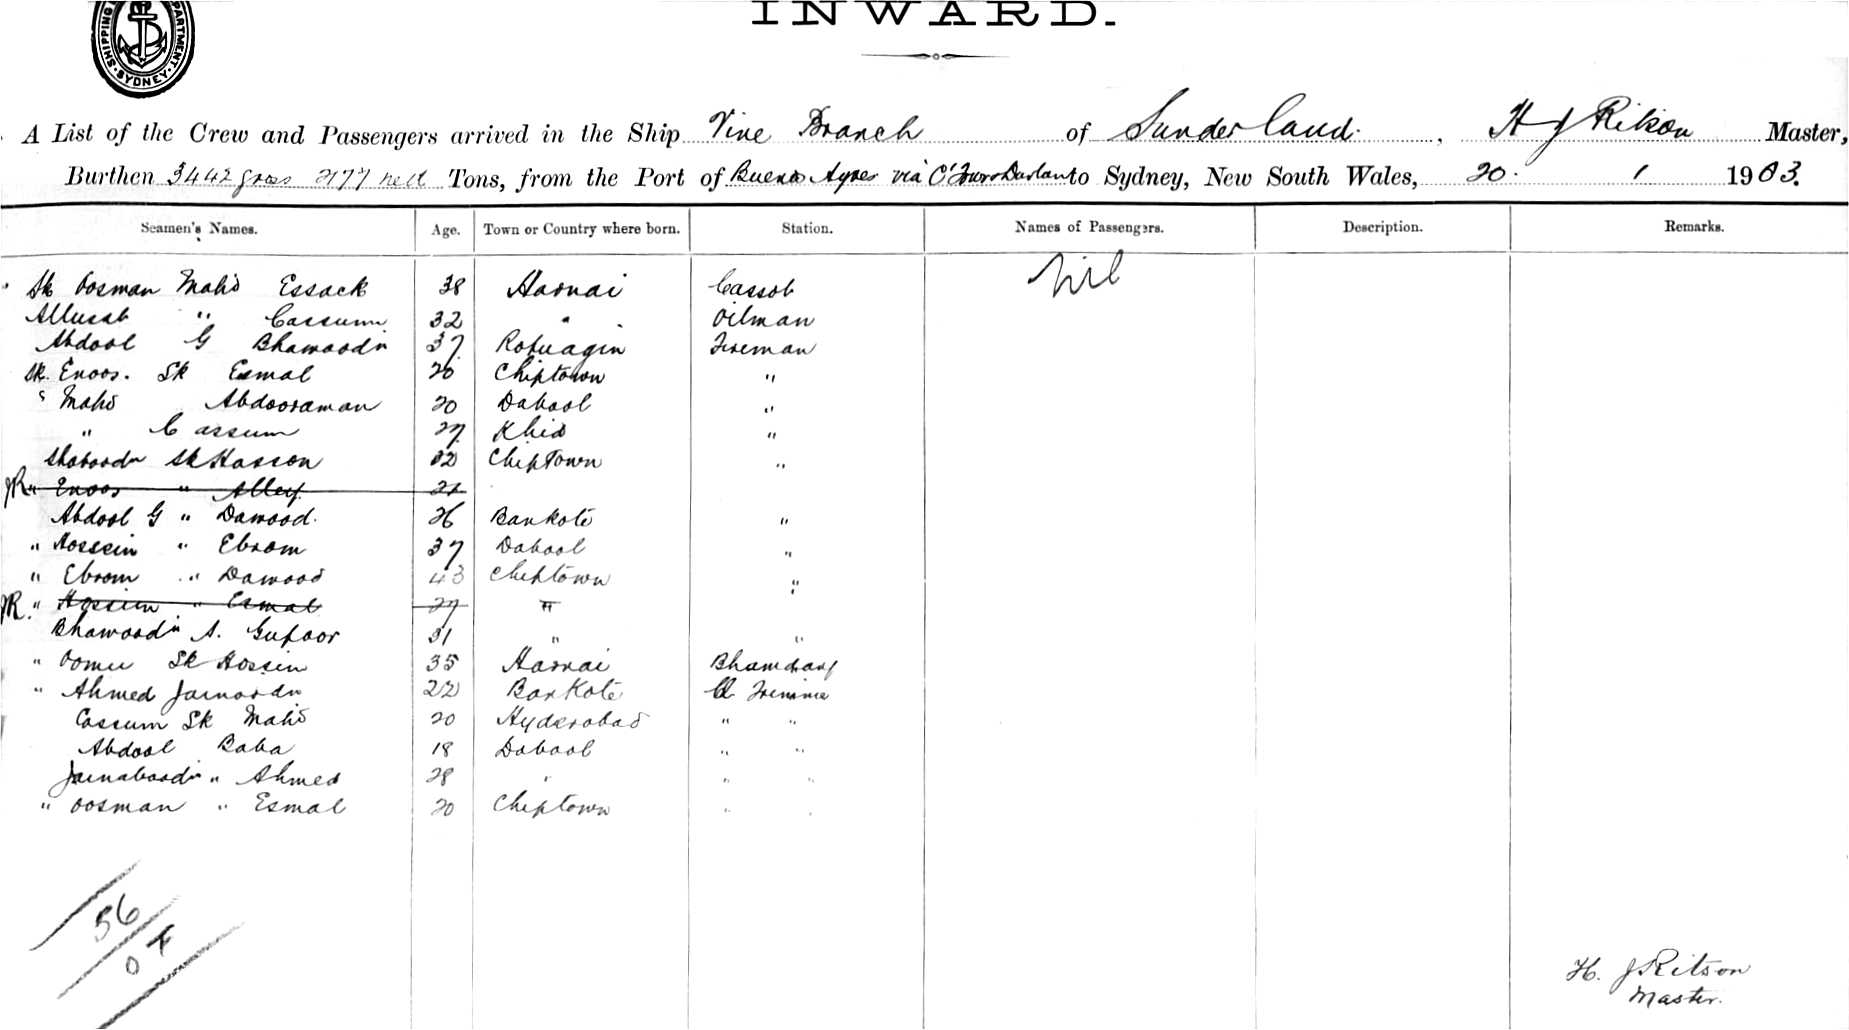 SHIPPING DEPARTMENT SYDNEY
INWARD.
A List of the Crew and Passengers arrived in the Ship Vine Branch of Sunderland, H J Ritson Master,
Burthen 3442 gross 2177 nett Tons, from the Port of Buenos Ayres via to Sydney, New South Wales, 20. 1 1903.
Seamen's Names. Age. Town or Country where born. Station. Names of Passengers. Description. Remarks.
Sk Oosman Mahd Essack 38 Harnai Cassob Nil
" Cassum 32 " Oilman
Abdool G Bhawoodn 37 Fireman
Sk. Enoos. Sk Esmal 20 Chiptown "
" Mahd Abdooraman 20 Dabool "
" Cassum 27 Khed "
Sk Hasson 32 Chiptown "
JR " Enoos " Alley 21
Abdool G " Dawood. 26 Bankote "
" Hossein " Ebrom 37 Dabool "
" Ebrom " Dawood 43 Chiptown "
JR. " Hossien " Esmal 27 "
Bhawoodn A. Gufoor 31 " "
" Oomer Sk Hossin 35 Harnai
" Ahmed Jainoodn 22 Bankote
Cassum Sk Mahd 20 Hyderabad " "
Abdool Baba 18 Dabool " "
" Ahmed 28 " " "
" Oosman " Esmal 20 Chiptown " "
56
0
H. J Ritson
Master.